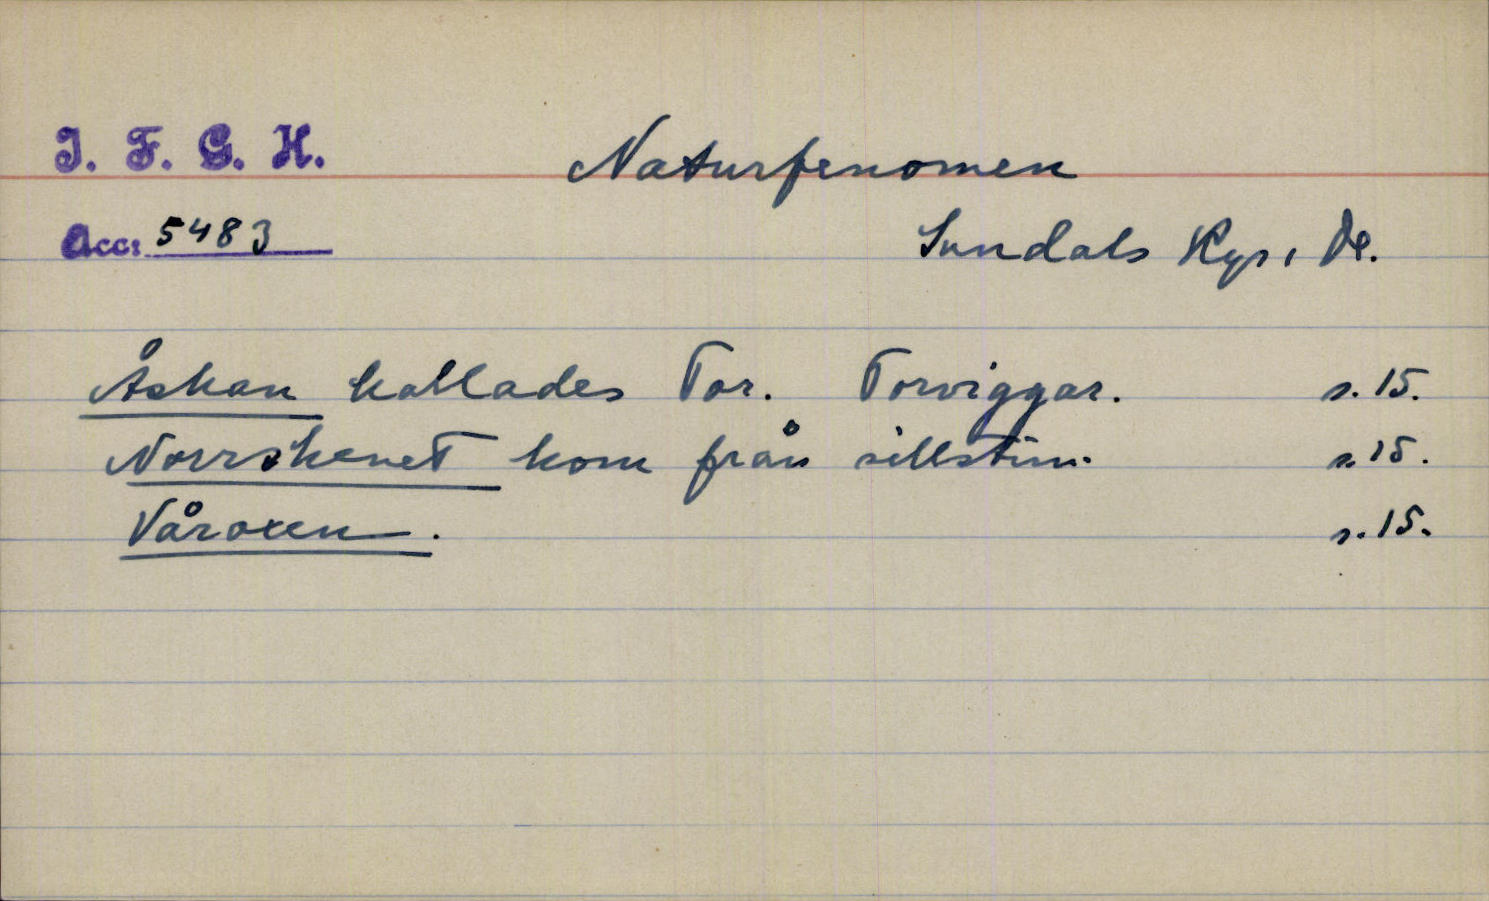 I. F. G. H.
Naturfenomen
Acc: 5483
Sundals Ryr, Dl.
Åskan kallades Tor. Torviggar. s. 15.
Norrskenet kom från sillstim. s. 15.
Våroxen. s. 15.